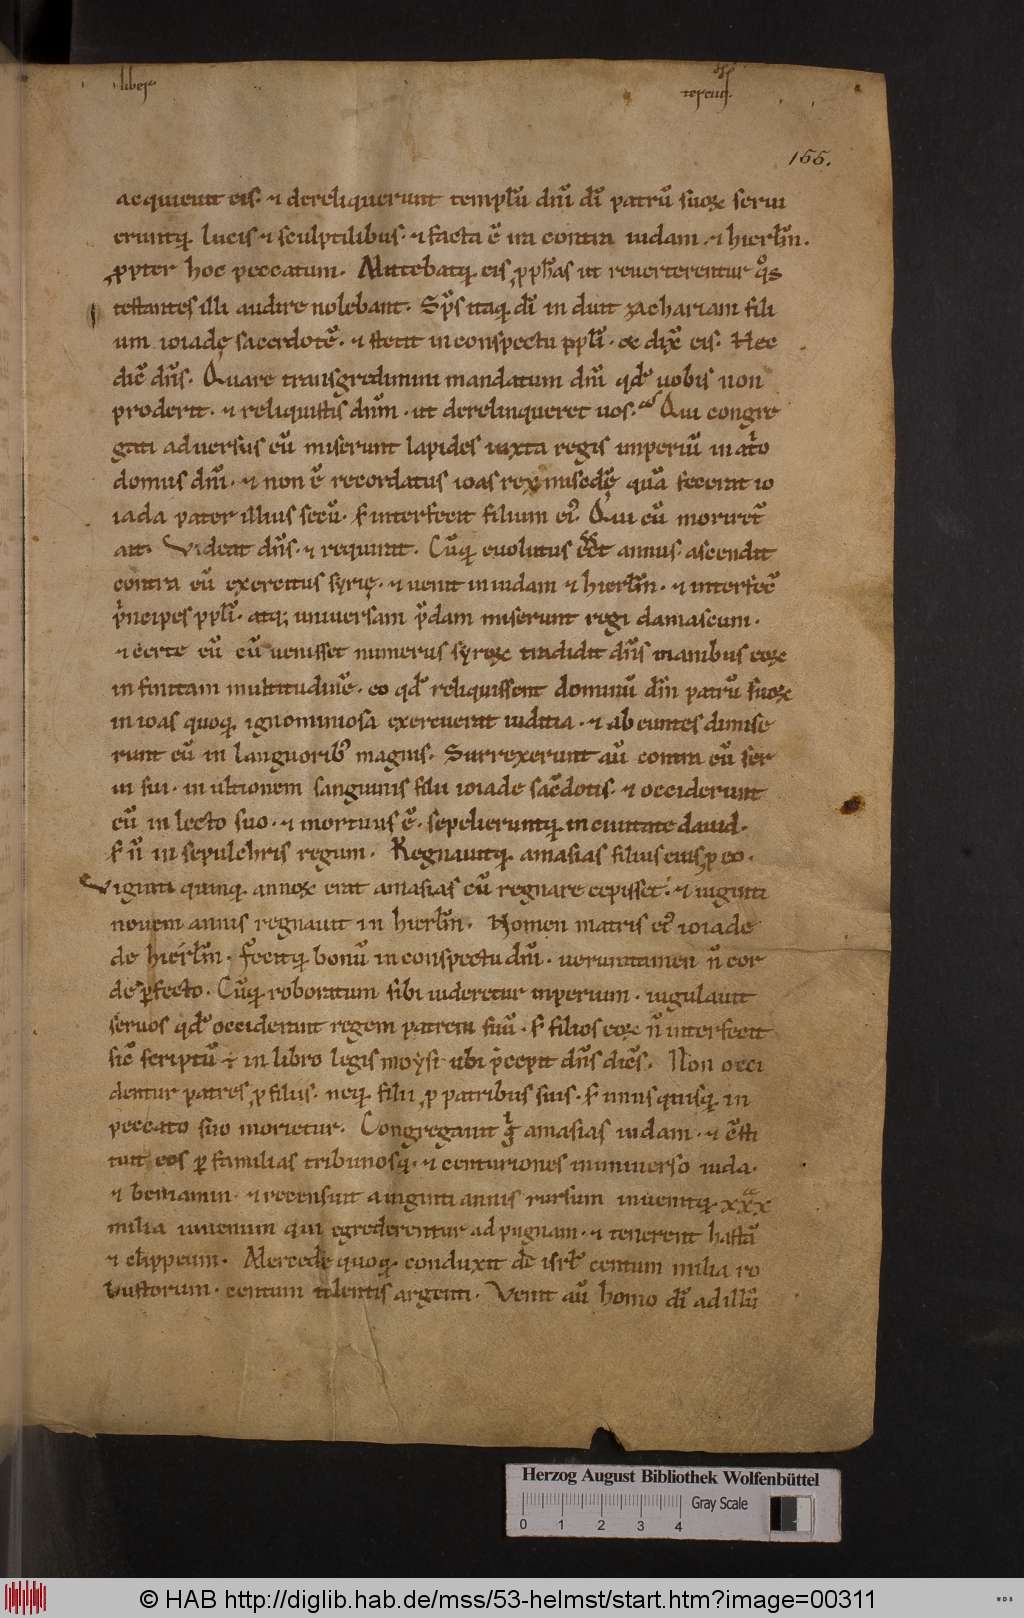 liber
tercius.
155.
acquieuit eis· ⁊ dereliquerunt templū dn̄i dī patrū suoꝝ serui
eruntq; lucis ⁊ sculptilibus· ⁊ facta ē ira contra iudam ⁊ hierl̄m·
ꝓpter hoc peccatum. Mittebatq; eis ꝓph̄as ut reuerterentur q̊s
testantes illi audire nolebant. Sp̄s itaq; dī induit zachariam fili
um ioiadę sacerdotē· ⁊ stetit in conspectu pp̄li· ⁊ dix̄ eis. Hec
dic̄ dn̄s. Quare transgredimini mandatum dn̄i qd̄ uobis non
proderit· ⁊ reliquistis dnm̄· ut derelinqueret uos. Qui congre
gati aduersus eū miserunt lapides iuxta regis imperiū in atͥo
domus dn̄i· ⁊ non ē recordatus ioas rex mis̄cdię quā fecerat io
iada pater illius secū· s; interfecit filium ei᷒. Qui cū moriret᷑
ait. Videat dn̄s· ⁊ requirat. Cūq; euolutus ēēt annus· ascendit
contra eū exercitus syrię· ⁊ uenit in iudam ⁊ hierl̄m· ⁊ interfec̄
pͥncipes pp̄li· atq; uniuersam p̄dam miserunt regi damascum·
⁊ certe cū eū uenisset numerus syroꝝ tradidit dn̄s manibus eoꝝ
infinitam multitudinē· eo qd̄ reliquissent dominū dm̄ patrū suoꝝ
in ioas quoq; ignominiosa exercuerat iuditia· ⁊ abeuntes dimise
runt eū in languorib᷒ magnis. Surrexerunt aū contra eū ser
ui sui· in ultionem sanguinis filii ioiade sac̄dotis· ⁊ occiderunt
eū in lecto suo· ⁊ mortuus ē· sepelieruntq; in ciuitate dauid·
s; n̄ in sepulchris regum. Regnauitq; amasias filius eius ꝓ eo·
Viginti quinq; annoꝝ erat amasias cū regnare cepisset· ⁊ uiginti
nouem annis regnauit in hierl̄m. Nomen matris ei᷒ ioiade
de hierl̄m. Fecitq; bonū in conspectu dn̄i· uerumtamen n̄ cor
de ꝑfecto. Cūq; roboratum sibi uideretur imperium· iugulauit
seruos qd̄ occiderunt regem patrem suū· s; filios eoꝝ n̄ interfecit
sic̄ scriptū ÷ in libro legis moysi ubi p̄cepit dn̄s dic̄s. Non occi
dentur patres ꝓ filiis· neq; filii ꝓ patribus suis· s; unusquisq; in
peccato suo morietur. Congregauit gͥ amasias iudam· ⁊ c̄sti
tuit eos ꝑ familias tribunosq;· ⁊ centuriones in uniuerso iuda·
⁊ beniamin· ⁊ recensuit a uiginti annis sursum inuenitq; xxx̄
milia iuuenum qui egrederentur ad pugnam· ⁊ tenerent hastā
⁊ clippeum. Mercede quoq; conduxit de isrl̄ centum milia ro
bustorum· centum talentis argenti. Venit aū homo dī ad illū
Herzog August Bibliothek Wolfenbüttel
Gray Scale
0 1 2 3 4
© HAB http://diglib.hab.de/mss/53-helmst/start.htm?image=00311